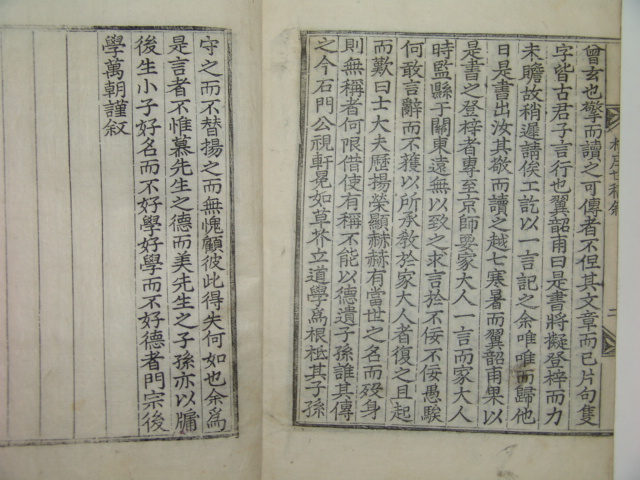 曾玄也擎而讀之可傳者不但其文章而已片句隻
字皆古君子言行也翼韶甫曰是書將擬登梓而力
未贍故稍遲請俟工訖以一言記之余唯唯而歸他
日是書出汝其敬而讀之越七寒暑而翼韶甫果以
是書之登梓者專至京師要家大人一言而家大人
時監縣于關東遠無以致之求言於不佞不佞愚騃
何敢言辭而不獲以所承敎於家大人者復之且起
而歎曰士大夫歷揚榮顯赫赫有當世之名而殁身
則無稱者何限借使有稱不能以德遺子孫誰其傳
之今石門公視軒冕如草芥立道學爲根柢其子孫
守之而不替揚之而無愧顧彼此得失何如也余爲
是言者不惟慕先生之德而美先生之子孫亦以牖
後生小子好名而不好學好學而不好德者門宗後
學萬朝謹叙
二